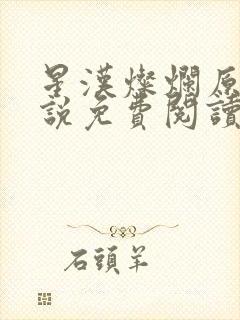 星漢燦爛原
說免費閱讀
石頭羊